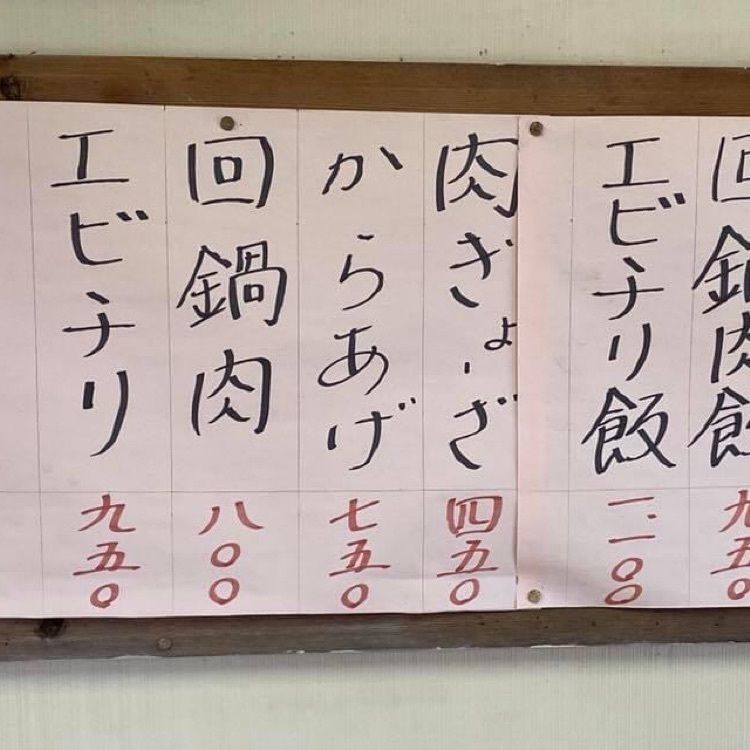 回鍋肉飯
九五〇
エビチリ飯
一、一〇〇
肉ぎょーざ
四五〇
からあげ
七五〇
回鍋肉
八〇〇
エビチリ
九五〇